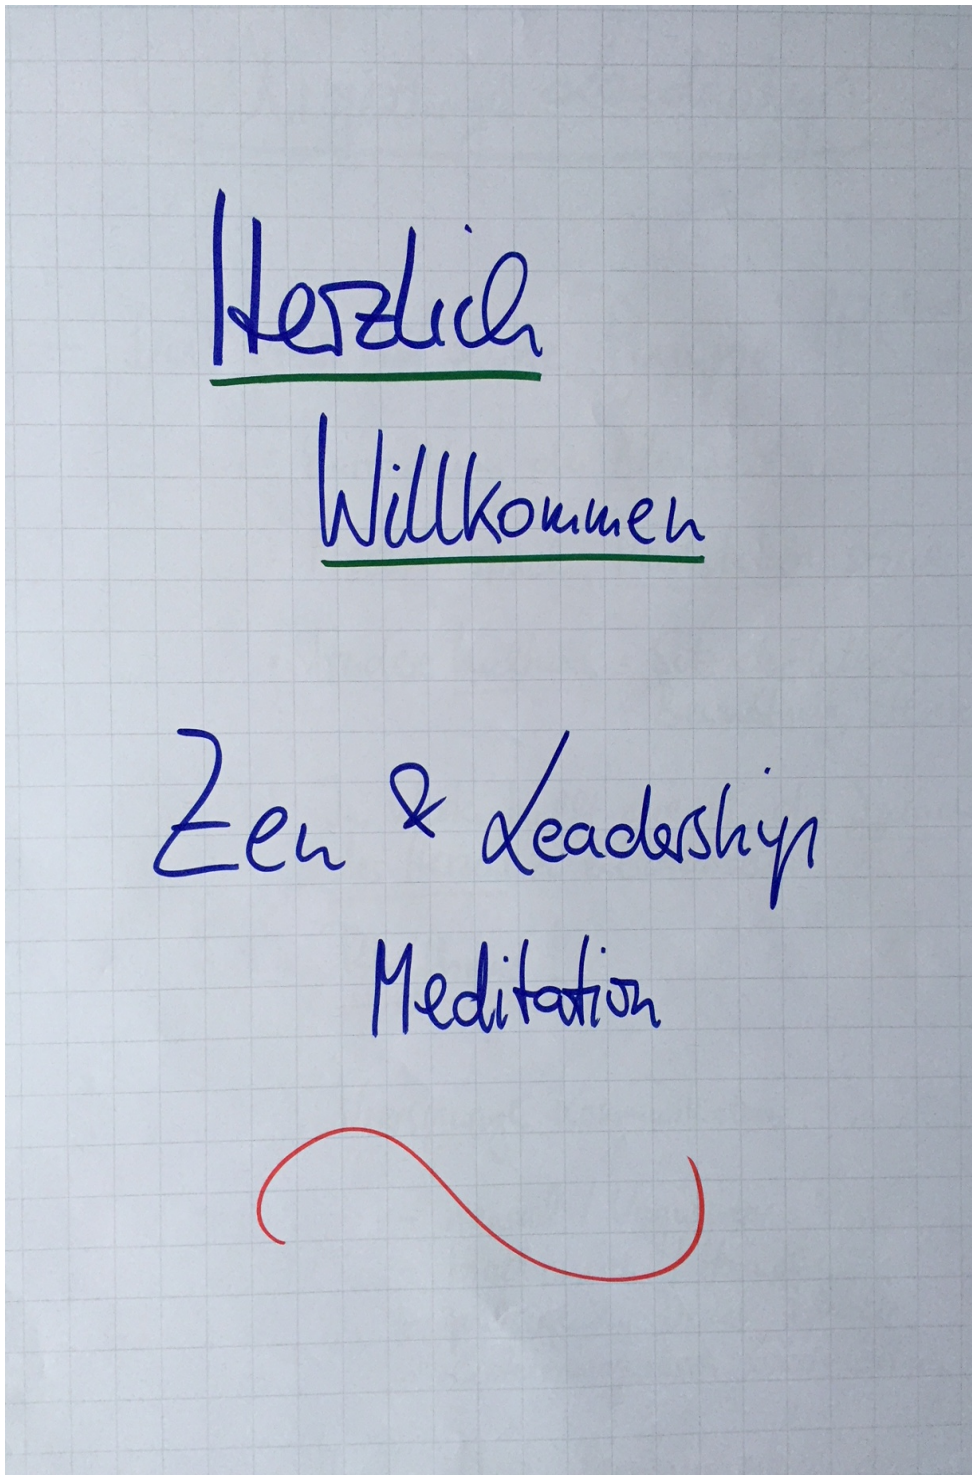 Herzlich
Willkommen
Zen & Leadership
Meditation